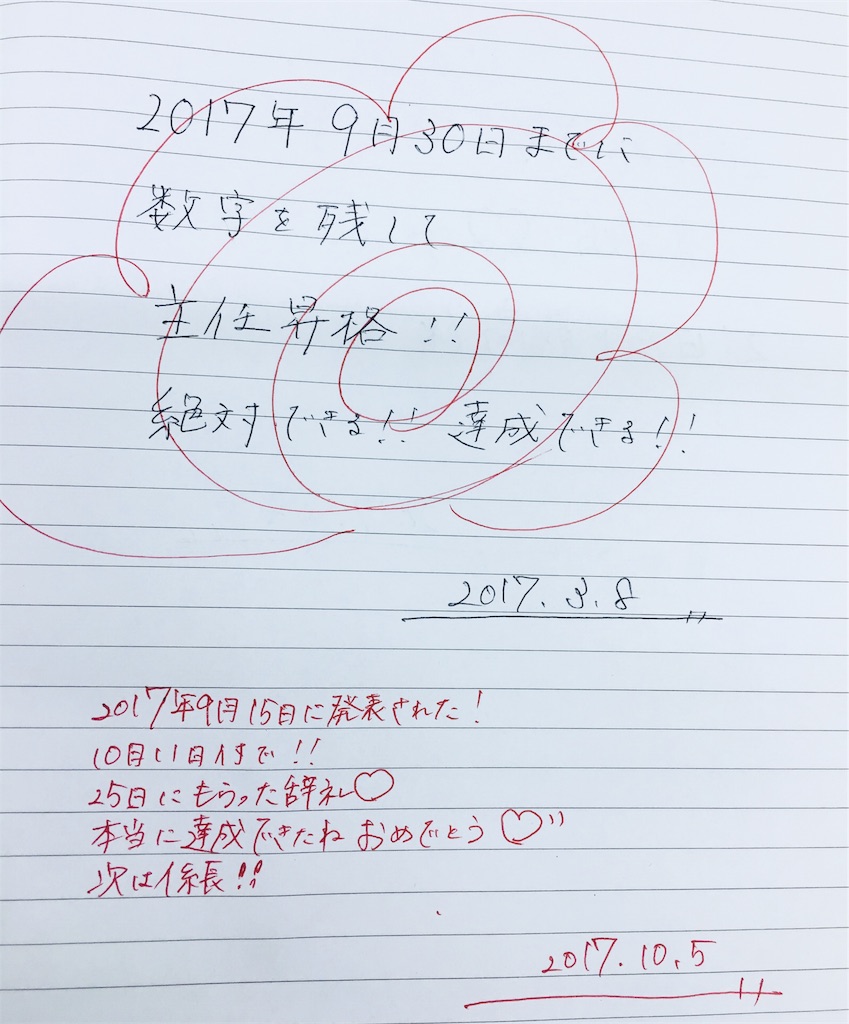 2017年 9月30日までに
数字を残して
主任昇格!!
絶対できる!! 達成できる!!
2017.3.8
2017年9月15日に発表された!
10月11日付で!!
25日にもらった辞礼♡
本当に達成できたね おめでとう♡
次は係長!!
2017.10.5